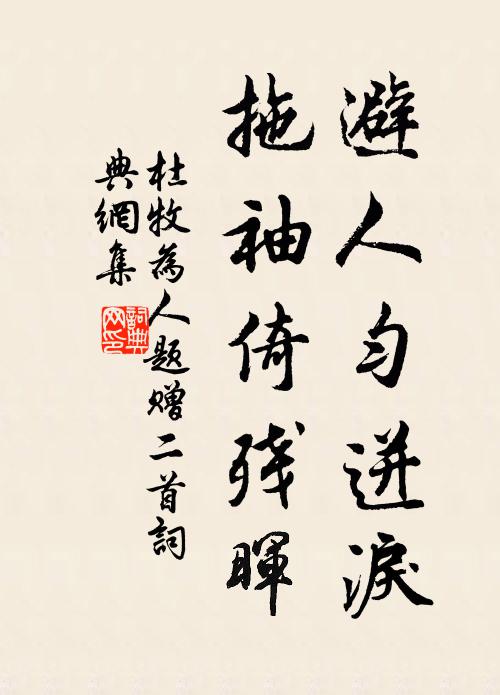 避人匀迸淚
拖袖倚残暉
杜牧為人題贈二首詞
典網集
詞典
网印